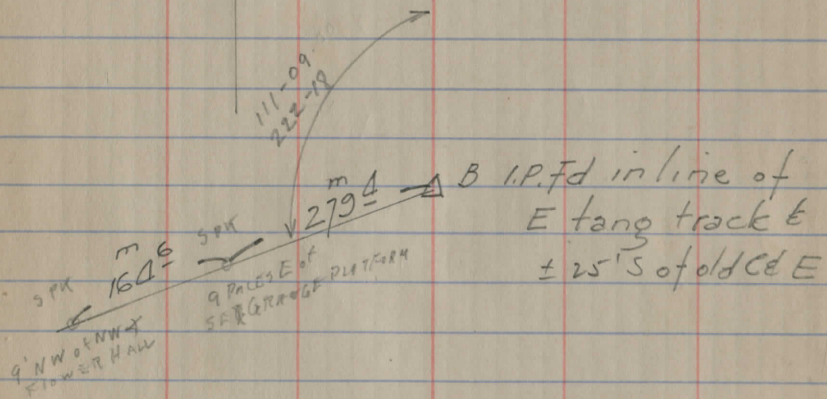 111-09
222-18
m
279 4
B I.P. Fd in line of
E tang track ℄
± 25' S of old Cd E
SPK
m
164 6
SPK
9 PACES E of
GRANGE PLATFORM
9' NW of NW
FLOWER HALL